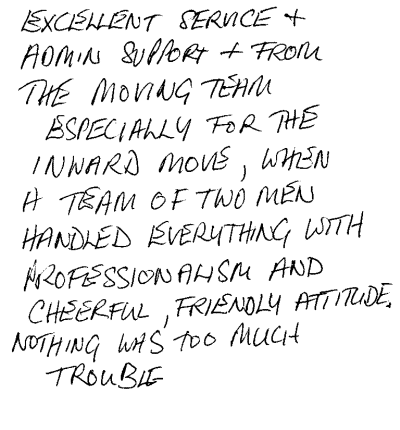 EXCELLENT SERVICE +
ADMIN SUPPORT + FROM
THE MOVING TEAM
ESPECIALLY FOR THE
INWARD MOVE, WHEN
A TEAM OF TWO MEN
HANDLED EVERYTHING WITH
PROFESSIONALISM AND
CHEERFUL, FRIENDLY ATTITUDE.
NOTHING WAS TOO MUCH
TROUBLE